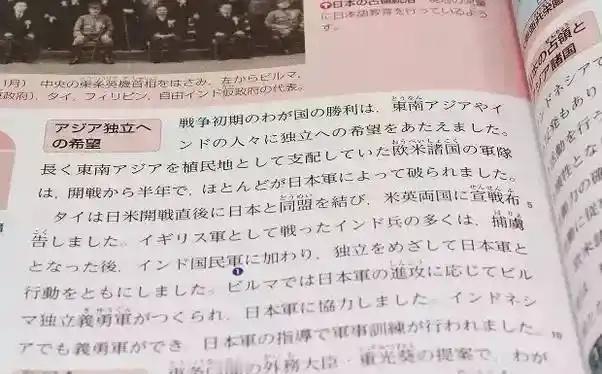 日本語教育を行っているよう
す。
1月） 中央の東条英機首相をはさみ，左からビルマ，
政府），タイ，フィリピン，自由インド仮政府の代表。
アジア独立へ
の希望
戦争初期のわが国の勝利は，東南アジアやイ
ンドの人々に独立への希望をあたえました。
長く東南アジアを植民地として支配していた欧米諸国の軍隊
は，開戦から半年で，ほとんどが日本軍によって破られました。
タイは日米開戦直後に日本と同盟を結び，米英両国に宣戦布 5
告しました。イギリス軍として戦ったインド兵の多くは，捕虜
となった後，インド国民軍に加わり，独立をめざして日本軍と
❶
行動をともにしました。ビルマでは日本軍の進攻に応じてビル
マ独立義勇軍がつくられ，日本軍に協力しました。インドネシ
アでも義勇軍ができ，日本軍の指導で軍事訓練が行われました。 10
外務大臣・重光葵の提案で，わが
の占領と
ジア諸国